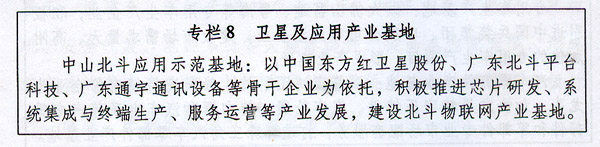 专栏8 卫星及应用产业基地
中山北斗应用示范基地：以中国东方红卫星股份、广东北斗平台
科技、广东通宇通讯设备等骨干企业为依托，积极推进芯片研发、系
统集成与终端生产、服务运营等产业发展，建设北斗物联网产业基地。